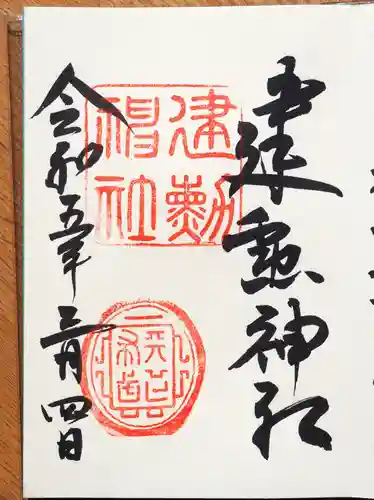 建勲神社
建勲
神社
令和五年三月四日